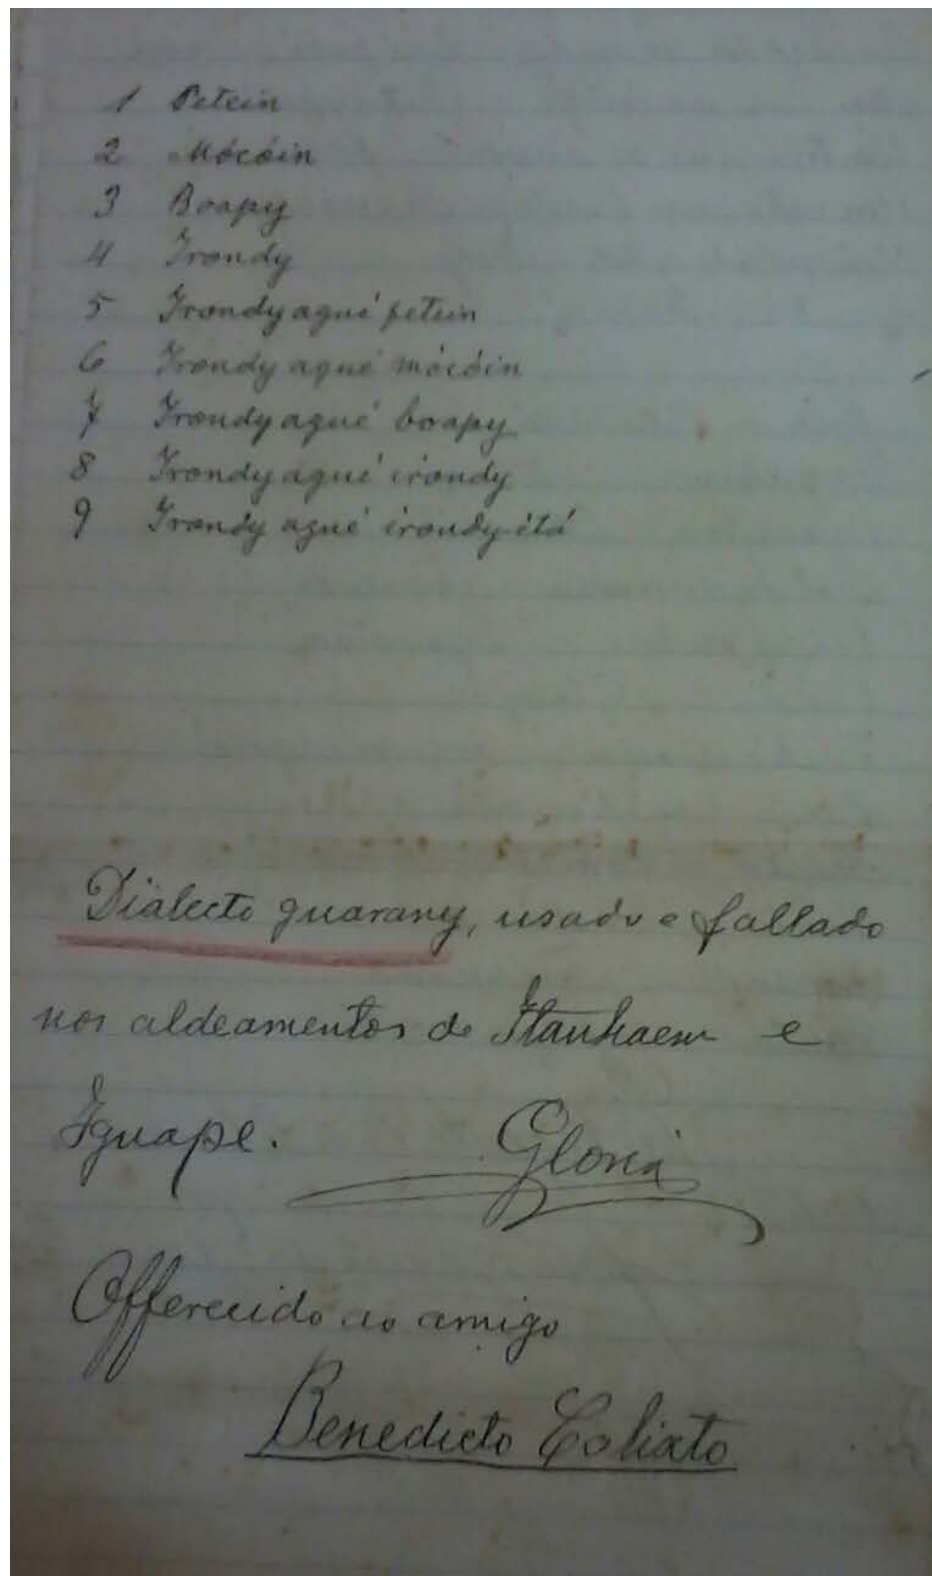 1 Petein
2 Mócóin
3 Boapy
4 Irondy
5 Irondy agué petein
6 Irondy agué mócóin
7 Irondy agué boapy
8 Irondy agué irondy
9 Irondy agué irondy étá
Dialecto guarany, usado e fallado
nos aldeamentos de Itanhaem e
Iguape. Gloria
Offerecido ao amigo
Benedicto Calixto